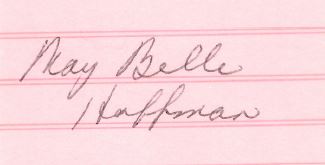 May Belle
Huffman